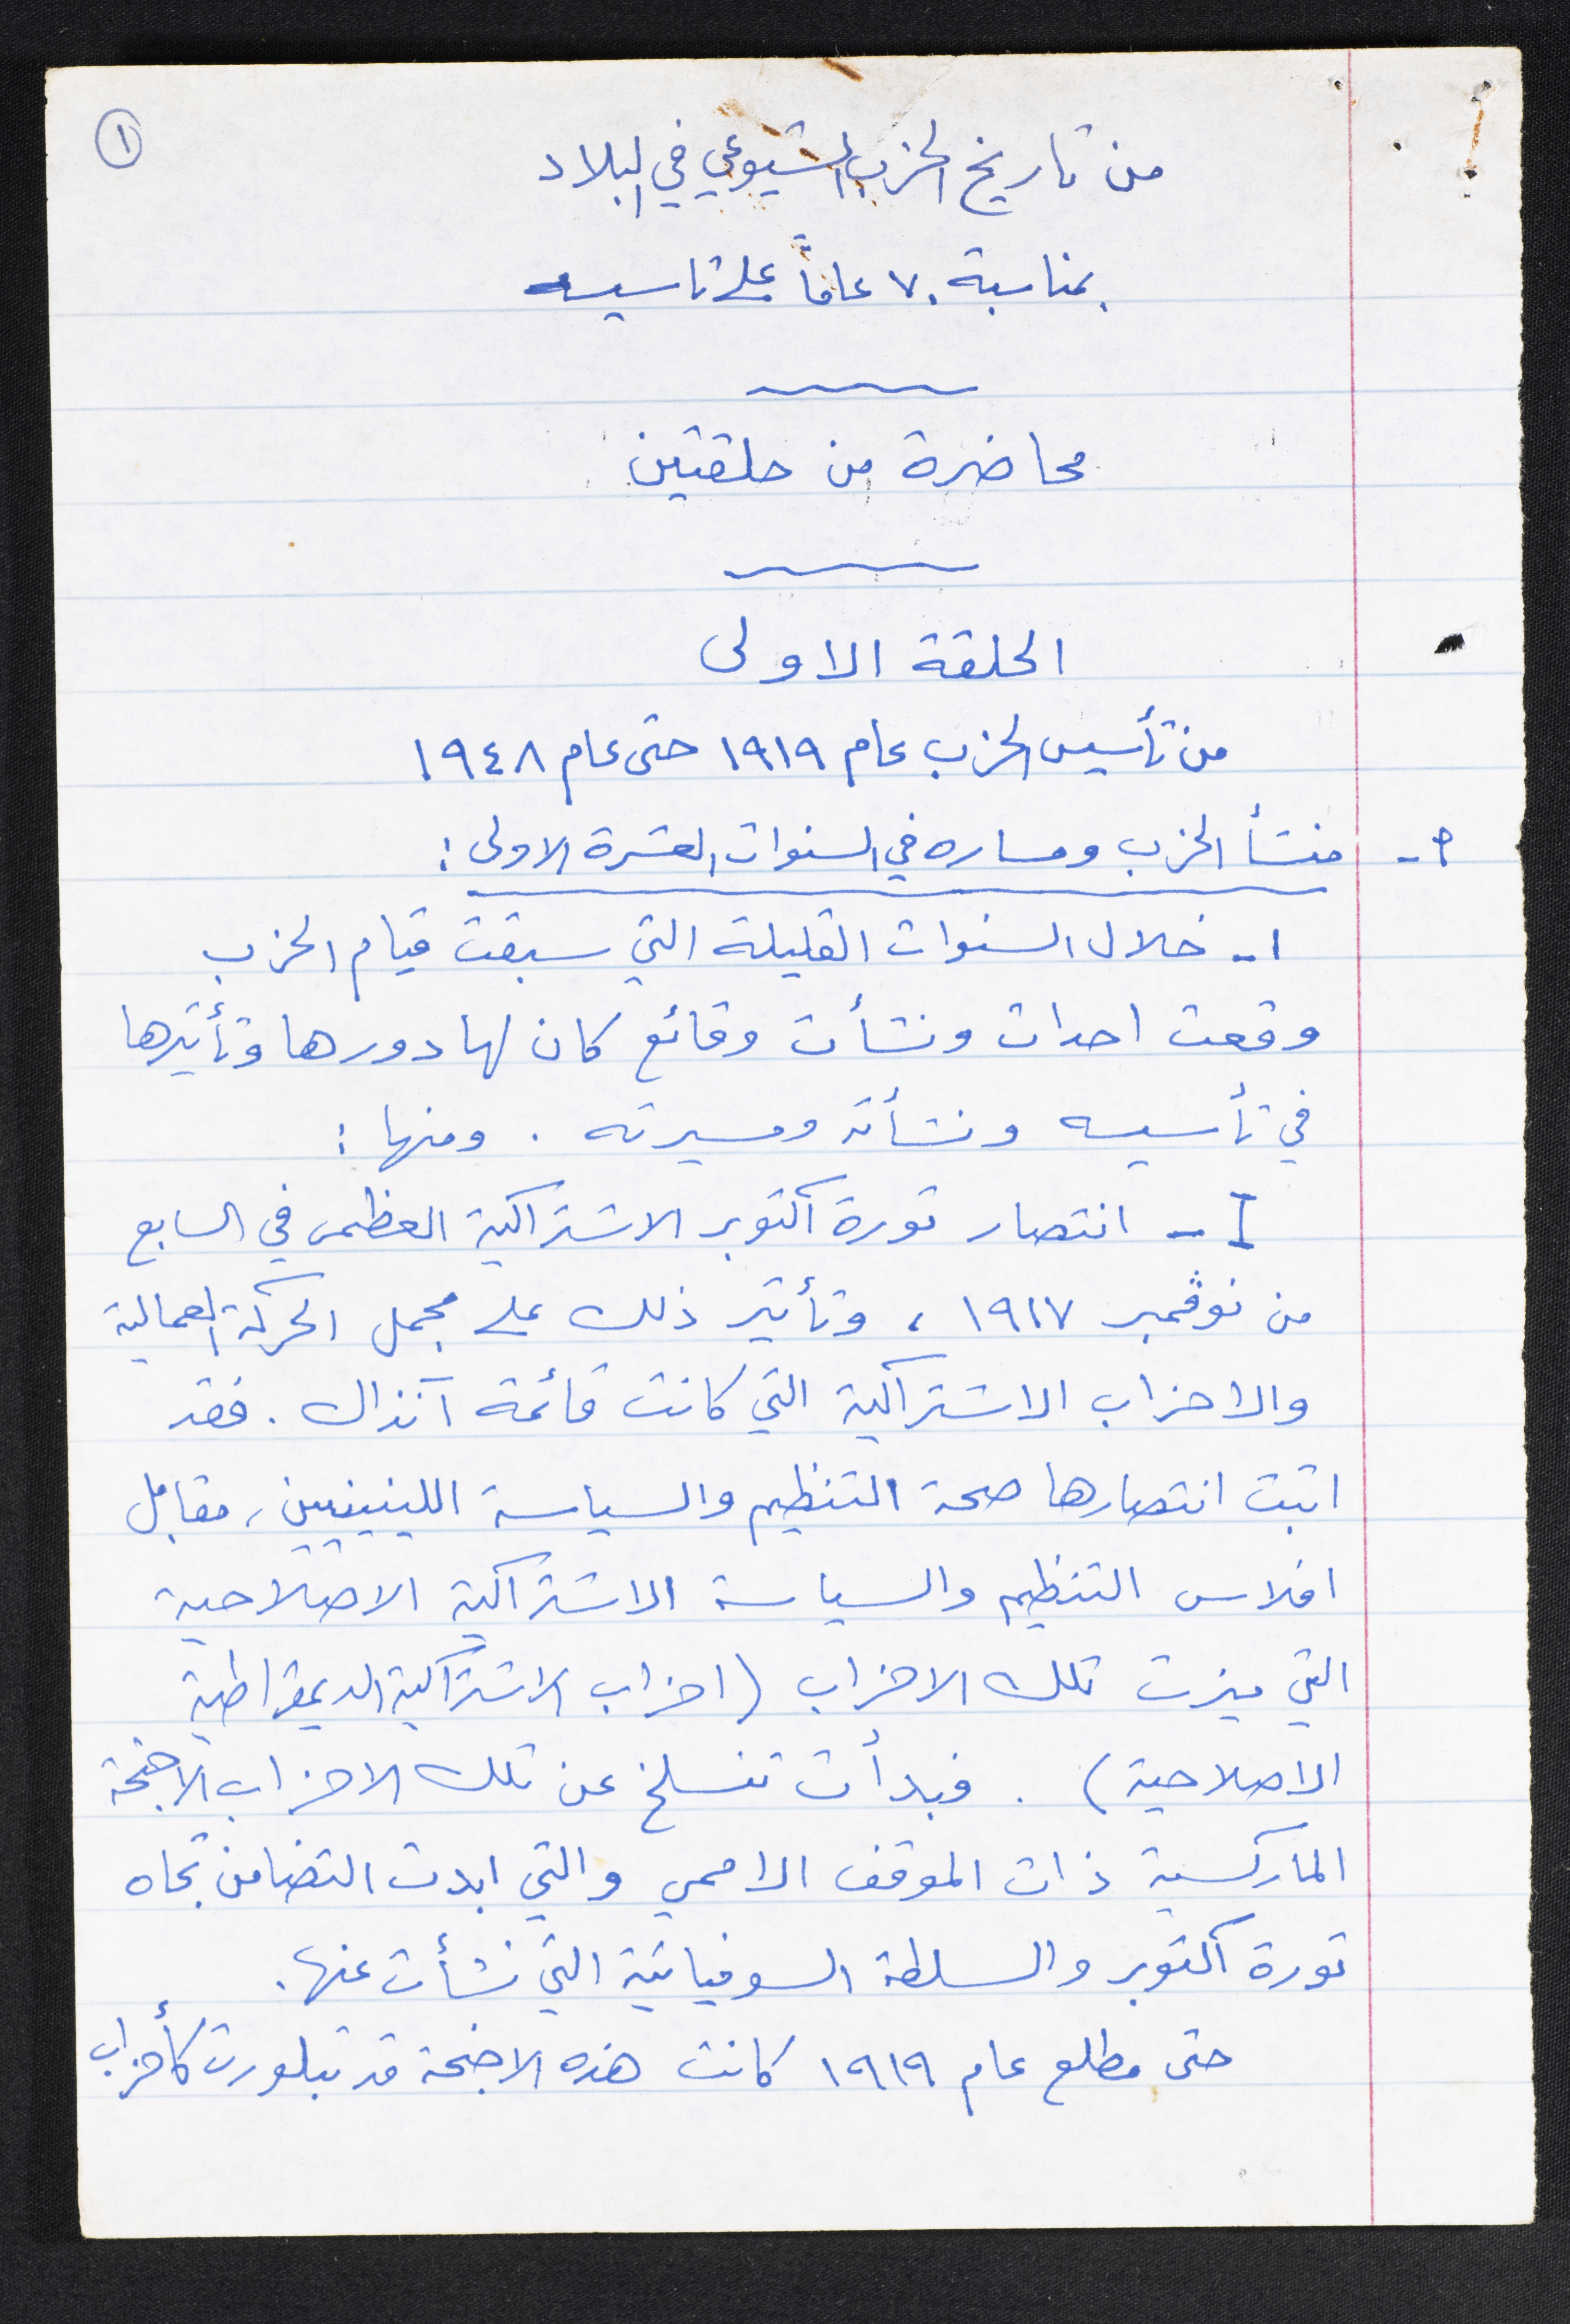 ١
من تاريخ الحزب الشيوعي في البلاد
بمناسبة ٧٠ عاماً على تاسيسه
محاضرة من حلقتين
الحلقة الاولى
من تأسيس الحزب عام ١٩١٩ حتى عام ١٩٤٨
أ- منشأ الحزب ومساره في السنوات العشرة الاولى :
١- خلال السنوات القليلة التي سبقت قيام الحزب
وقعت احداث ونشأت وقائع كان لها دورها وتأثيرها
في تأسيسه ونشأته ومسيرته . ومنها :
I - انتصار ثورة اكتوبر الاشتراكية العظمى في السابع
من نوڤمبر ١٩١٧ ، وتأثير ذلك على مجمل الحركة العمالية
والاحزاب الاشتراكية التي كانت قائمة آنذاك . فقد
اثبت انتصارها صحة التنظيم والسياسة اللينينيين ، مقابل
افلاس التنظيم والسياسة الاشتراكية الاصلاحية
التي ميزت تلك الاحزاب (احزاب الاشتراكية الديمقراطية
الاصلاحية) . فبدأت تنسلخ عن تلك الاحزاب الاجنحة
الماركسية ذات الموقف الاممي والتي ابدت التضامن تجاه
ثورة اكتوبر والسلطة السوفياتية التي نشأت عنها .
حتى مطلع عام ١٩١٩ كانت هذه الاجنحة قد تبلورت كأحزاب